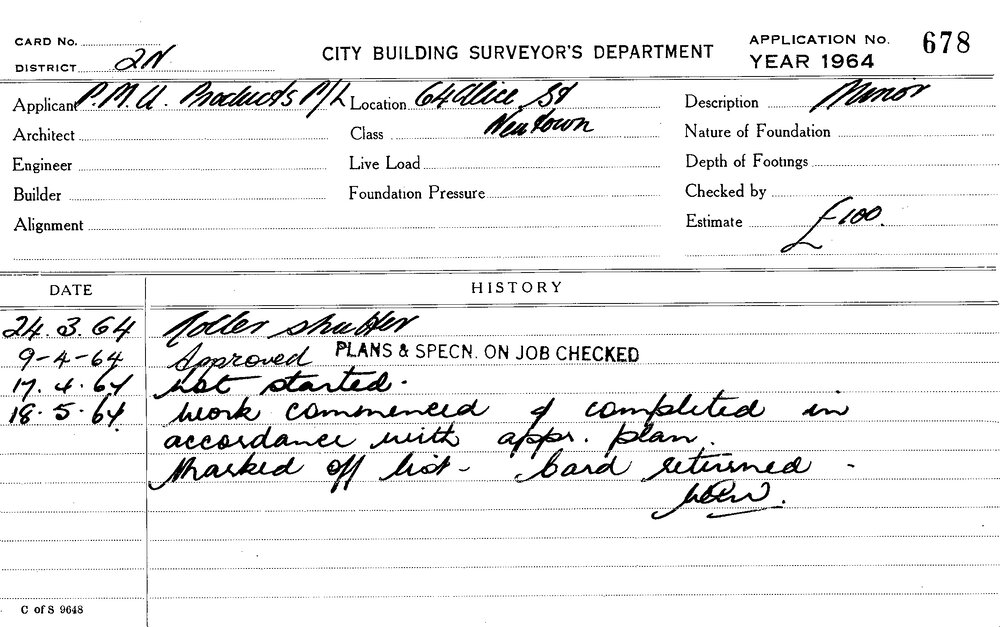 CARD No.
DISTRICT 2N
CITY BUILDING SURVEYOR'S DEPARTMENT
APPLICATION No. 678
YEAR 1964
Applicant P.M.U. Products P/L Location 64 Alice St Description Minor
Architect Class Newtown Nature of Foundation
Engineer Live Load Depth of Footings
Builder Foundation Pressure Checked by
Alignment Estimate £100.
DATE HISTORY
24.3.64 Roller shutter
9-4-64 Approved PLANS & SPECN. ON JOB CHECKED
17.4.64 Not started.
18.5.64 Work commenced & completed in
accordance with appr. plan.
Marked off list - Card returned -
C of S 9648